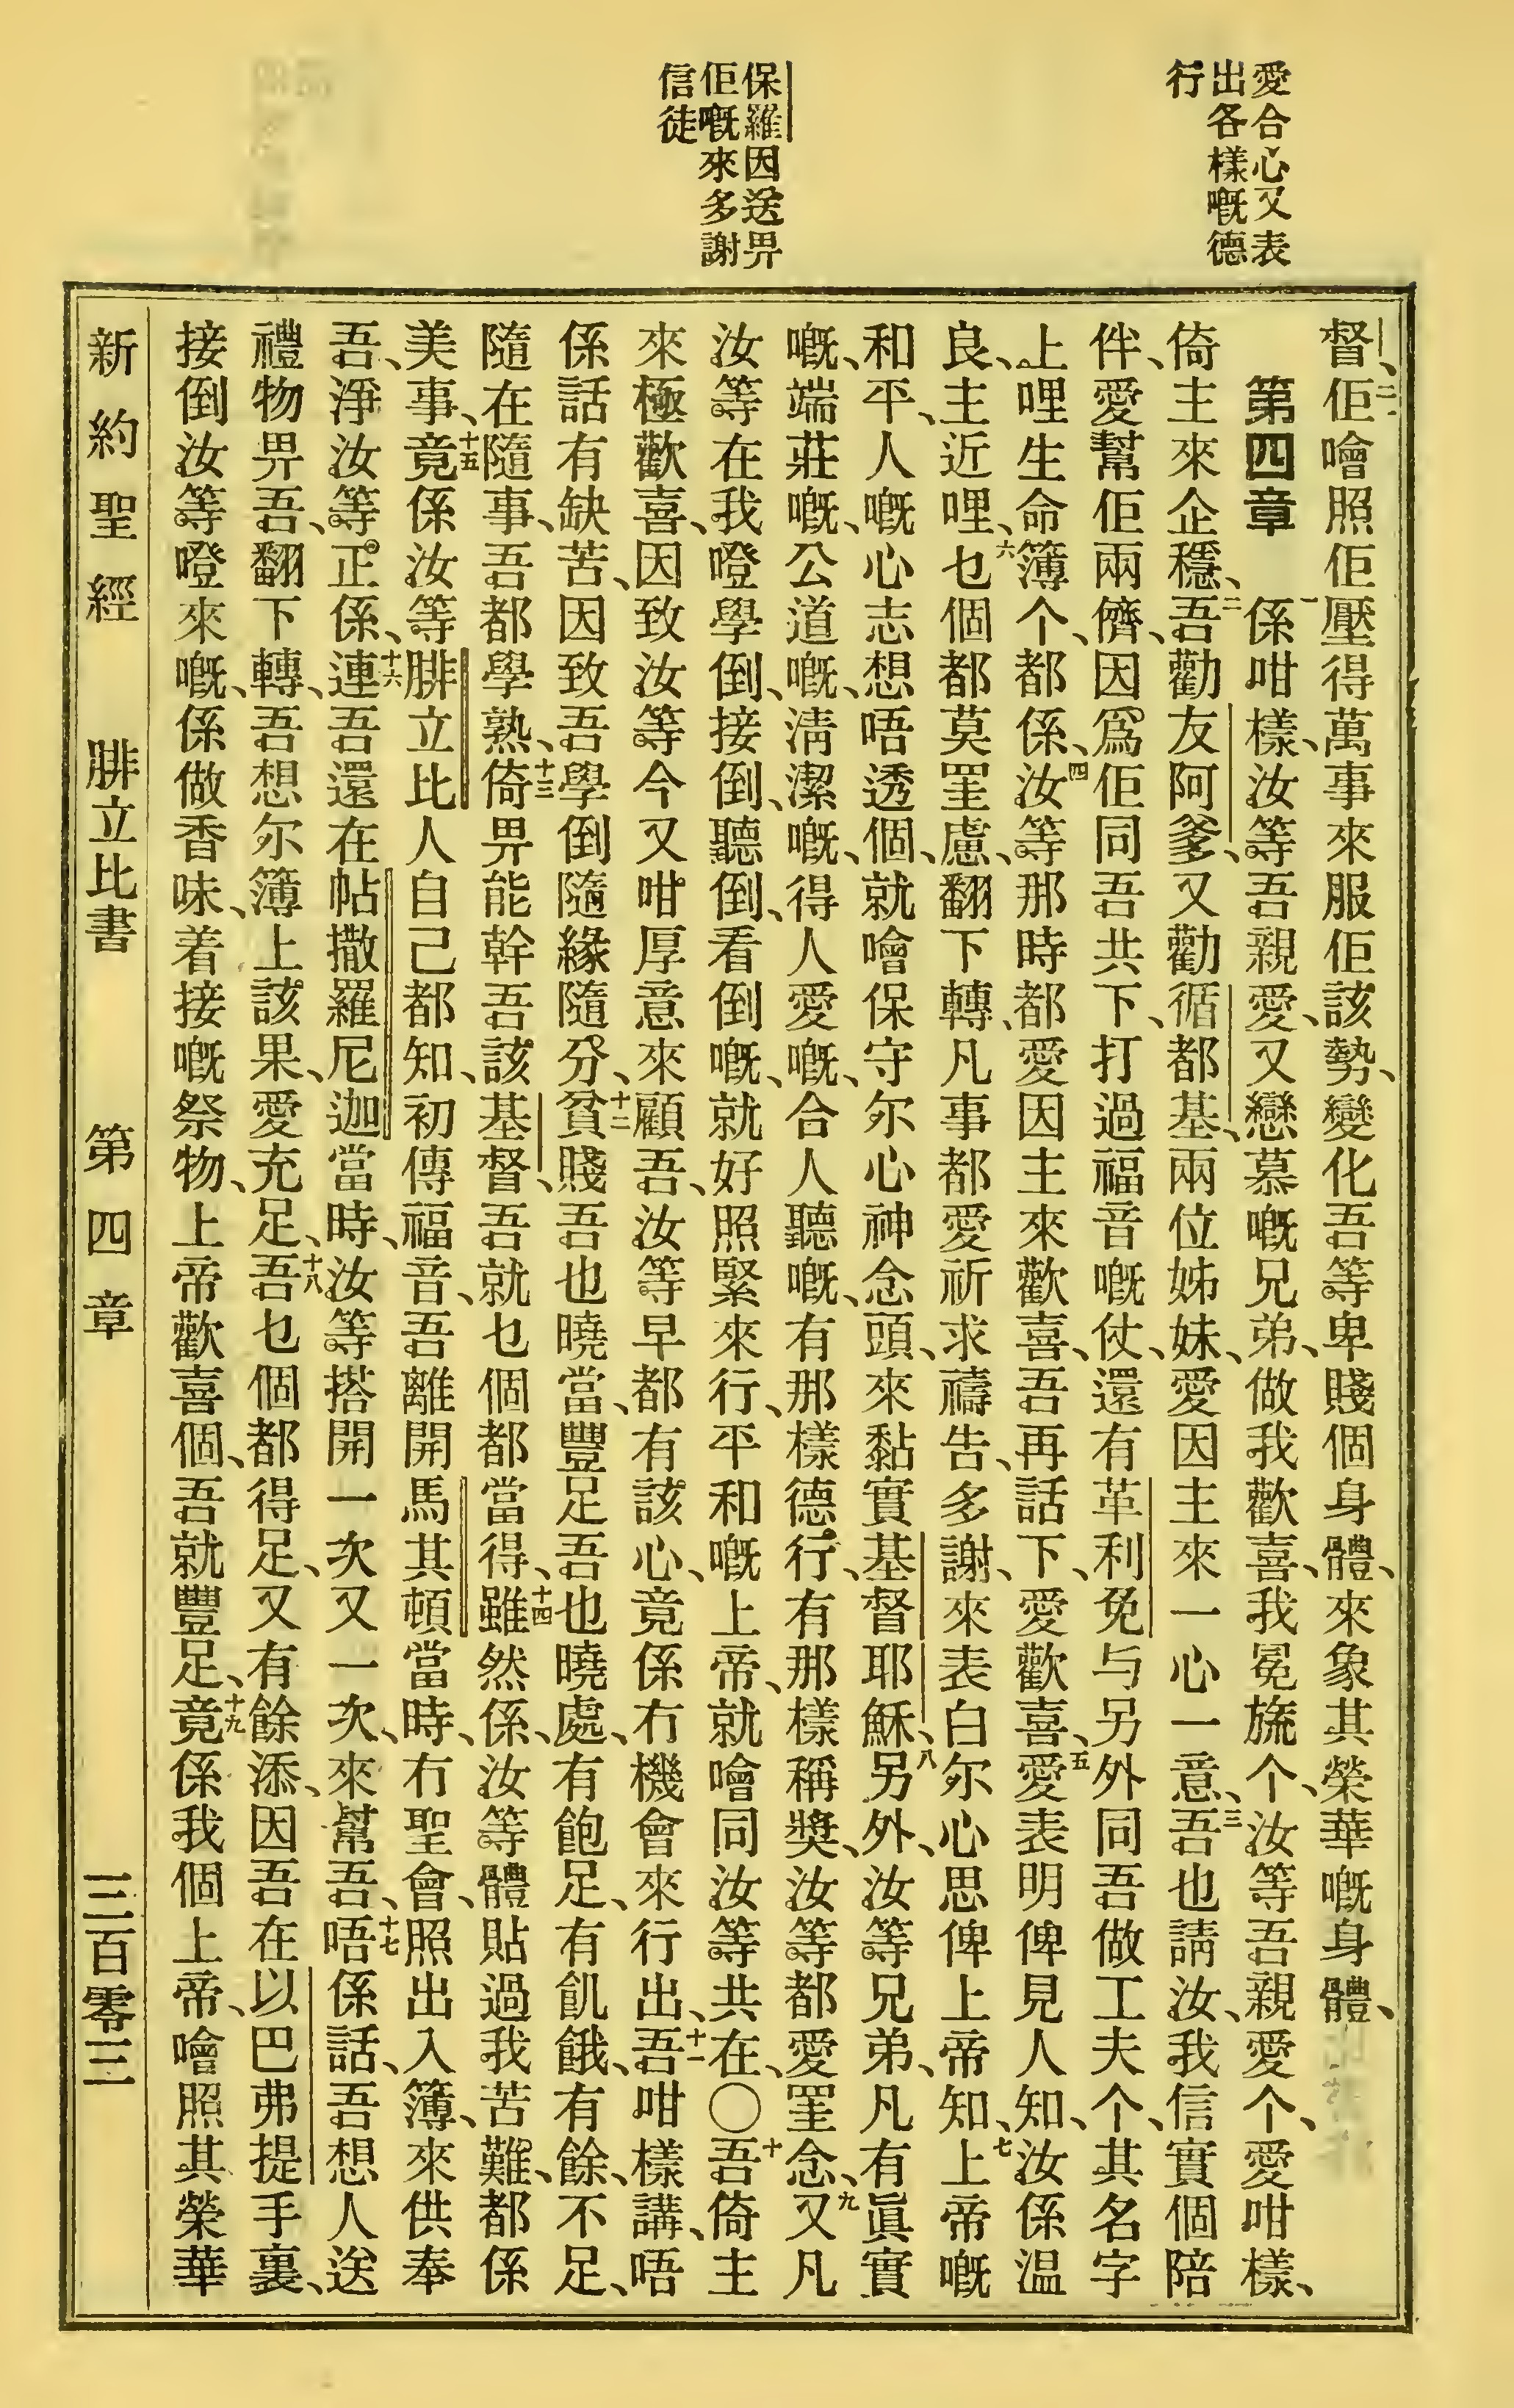 愛合心又表
出各樣嘅德
行
保羅因送畀
佢嘅來多謝
信徒
督、二一佢噲照佢壓得萬事來服佢該勢、變化吾等卑賤個身體、來象其榮華嘅身體、
第四章 一係咁樣、汝等吾親愛、又戀慕嘅兄弟、做我歡喜、我冕旒个、汝等吾親愛个、愛咁樣、
倚主來企穩、二吾勸友阿爹、又勸循都基、兩位姊妹、愛因主來一心一意、三吾也請汝、我信實個陪
伴、愛幫佢兩儕、因爲佢同吾共下、打過福音嘅仗、還有革利免与另外同吾做工夫个、其名字
上哩生命簿个、都係、四汝等那時都愛因主來歡喜、吾再話下、愛歡喜、五愛表明俾見人知、汝係温
良、主近哩、六乜個都莫罣慮、翻下轉、凡事都愛祈求禱告、多謝、來表白尔心思俾上帝知、七上帝嘅
和平、人嘅心志想唔透個、就噲保守尔心神念頭、來黏實基督耶穌、八另外、汝等兄弟、凡有眞實
嘅、端莊嘅、公道嘅、淸潔嘅、得人愛嘅、合人聽嘅、有那樣德行、有那樣稱獎、汝等都愛罣念、九又凡
汝等在我嶝學倒、接倒、聽倒、看倒嘅、就好照緊來行、平和嘅上帝、就噲同汝等共在、〇十吾倚主
來極歡喜、因致汝等今又咁厚意來顧吾、汝等早都有該心、竟係冇機會來行出、十一吾咁樣講、唔
係話有缺苦、因致吾學倒隨緣隨分、十二貧賤吾也曉當、豐足吾也曉處、有飽足、有飢餓、有餘、不足、
隨在隨事、吾都學熟、十三倚畀能幹吾該基督、吾就乜個都當得、十四雖然係、汝等體貼過我苦難、都係
美事、十五竟係汝等腓立比人自己都知、初傳福音、吾離開馬其頓當時、冇聖會、照出入簿、來供奉
吾、淨汝等正係、十六連吾還在帖撒羅尼迦當時、汝等搭開一次又一次、來幫吾、十七唔係話、吾想人送
禮物畀吾、翻下轉、吾想尔簿上該果、愛充足、十八吾乜個都得足、又有餘添、因吾在以巴弗提手裏、
接倒汝等嶝來嘅、係做香味、着接嘅祭物、上帝歡喜個、吾就豐足、十九竟係我個上帝、噲照其榮華
新約聖經 腓立比書 第四章 三百零三